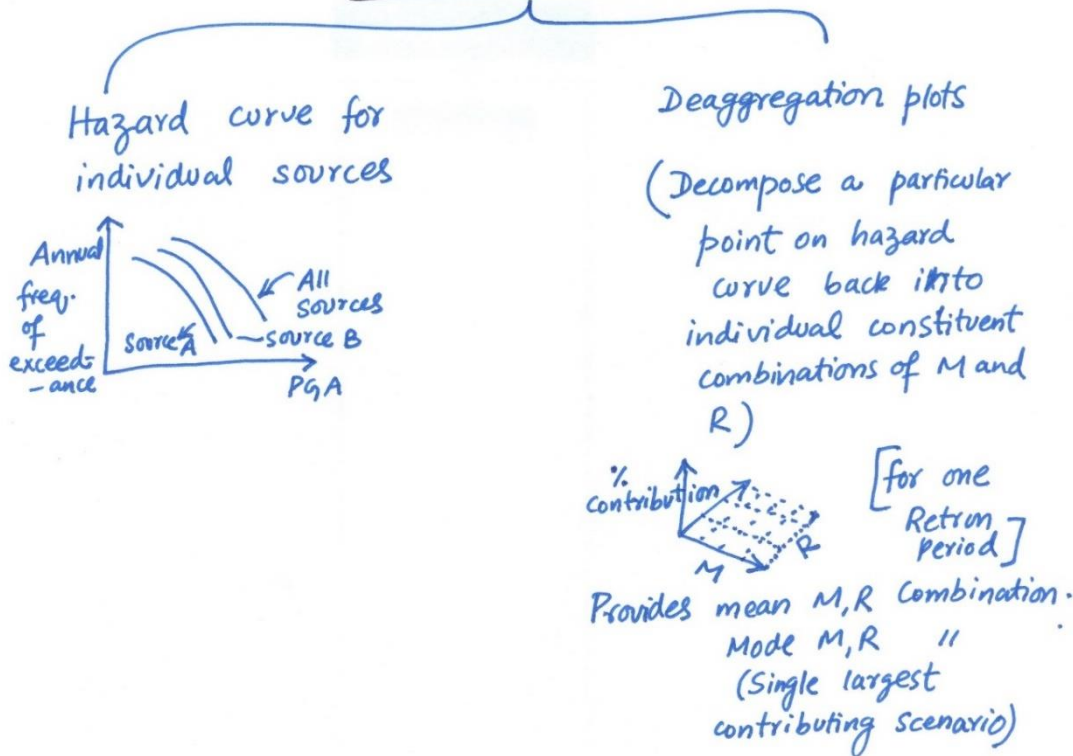 Hazard curve for
individual sources
Annual
freq.
of
exceed-
-ance
Source A
All
sources
Source B
PGA
Deaggregation plots
(Decompose a particular
point on hazard
curve back into
individual constituent
combinations of M and
R)
%
contribution
M
R
[for one
Retrun
period]
Provides mean M,R Combination.
Mode M,R "
(Single largest
contributing scenario)